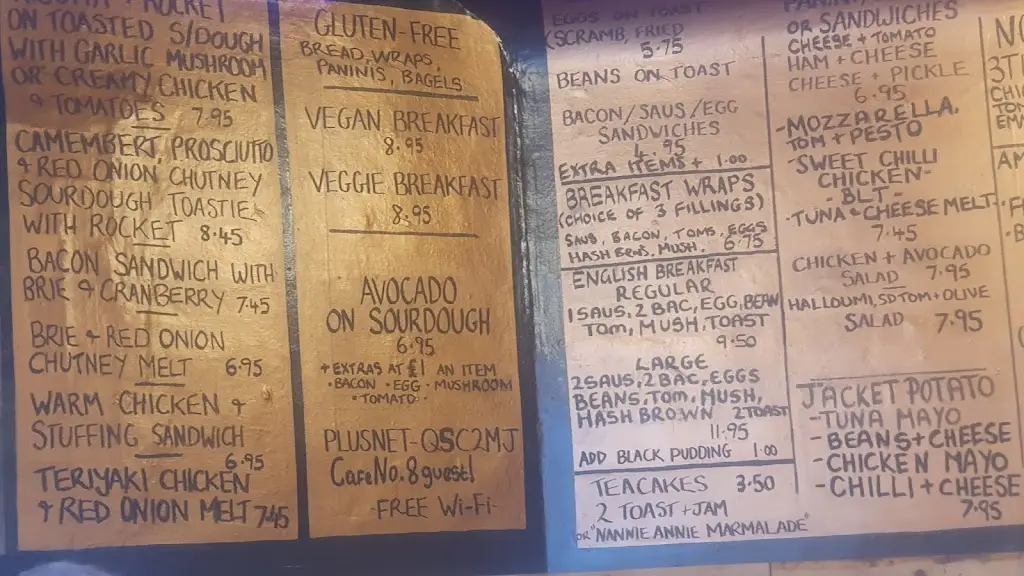 ROCKET
ON TOASTED S/DOUGH
WITH GARLIC MUSHROOM
OR CREAMY CHICKEN
& TOMATOES 7.95
CAMEMBERT, PROSCIUTTO
& RED ONION CHUTNEY
SOURDOUGH TOASTIE
WITH ROCKET 8.45
BACON SANDWICH WITH
BRIE & CRANBERRY 7.45
BRIE & RED ONION
CHUTNEY MELT 6.95
WARM CHICKEN &
STUFFING SANDWICH
6.95
TERIYAKI CHICKEN
& RED ONION MELT 7.45
GLUTEN-FREE
BREAD, WRAPS,
PANINIS, BAGELS
VEGAN BREAKFAST
8.95
VEGGIE BREAKFAST
8.95
AVOCADO
ON SOURDOUGH
6.95
+ EXTRAS AT £1 AN ITEM
• BACON • EGG • MUSHROOM
• TOMATO •
PLUSNET-QSC2MJ
CafeNo.8guest!
-FREE Wi-Fi-
EGGS ON TOAST
(SCRAMB, FRIED
5.75
BEANS ON TOAST
BACON/SAUS/EGG
SANDWICHES
4.95
EXTRA ITEMS + 1.00
BREAKFAST WRAPS
(CHOICE OF 3 FILLINGS)
SAUS, BACON, TOMS, EGGS
HASH BRNS, MUSH. 6.75
ENGLISH BREAKFAST
REGULAR
1 SAUS, 2 BAC, EGG, BEAN
TOM, MUSH, TOAST
9.50
LARGE
2 SAUS, 2 BAC, EGGS
BEANS, TOM, MUSH,
HASH BROWN 2 TOAST
11.95
ADD BLACK PUDDING 1.00
TEACAKES 3.50
2 TOAST + JAM
OR "NANNIE ANNIE MARMALADE"
OR SANDWICHES
CHEESE + TOMATO
HAM + CHEESE
CHEESE + PICKLE
6.95
-MOZZARELLA,
TOM + PESTO
-SWEET CHILLI
CHICKEN-
-BLT-
-TUNA & CHEESE MELT
7.45
CHICKEN + AVOCADO
SALAD 7.95
HALLOUMI, SD TOM + OLIVE
SALAD 7.95
JACKET POTATO
-TUNA MAYO
-BEANS + CHEESE
-CHICKEN MAYO
-CHILLI + CHEESE
7.95